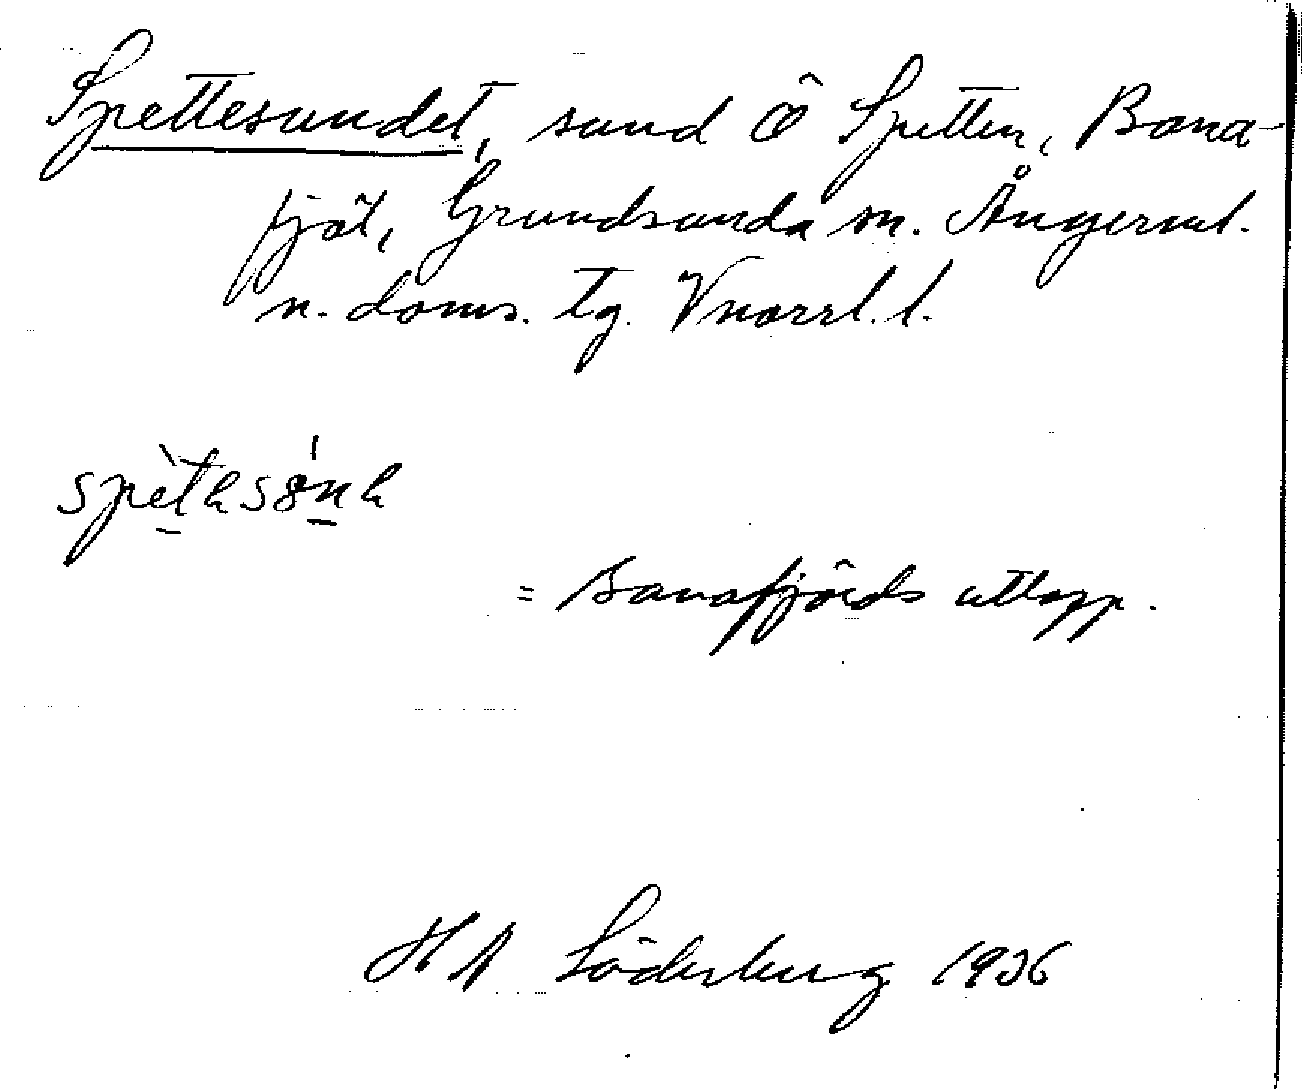 Spettesundet, sund Ö Spetten, Bana-
fjäl, Grundsunda sn. Ångerml.
n. doms. tg. Vnorrl. l.
= Banafjärds utlopp.
H A Söderberg 1936